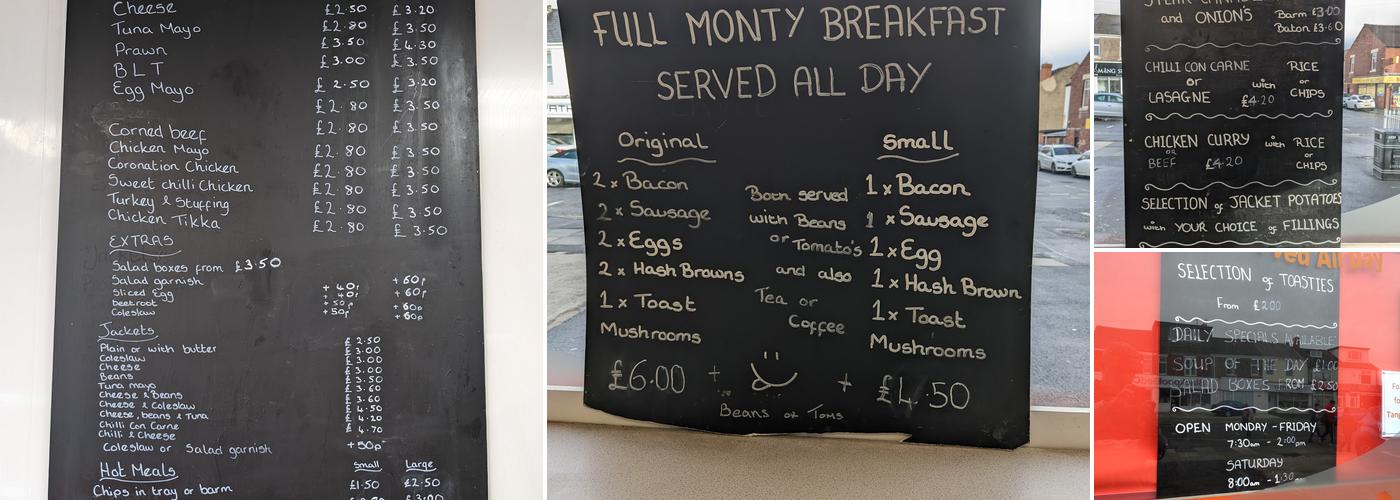 Cheese £2.50 £3.20
Tuna Mayo £2.80 £3.50
Prawn £3.50 £4.30
BLT £3.00 £3.50
Egg Mayo £2.50 £3.20
£2.80 £3.50
Corned beef £2.80 £3.50
Chicken Mayo £2.80 £3.50
Coronation Chicken £2.80 £3.50
Sweet chilli Chicken £2.80 £3.50
Turkey & Stuffing £2.80 £3.50
Chicken Tikka £2.80 £3.50
EXTRAS
Salad boxes from £3.50
Salad garnish + 40p + 60p
Sliced Egg + 40p + 60p
beetroot + 50p + 60p
Coleslaw + 50p + 60p
Jackets
Plain or with butter £2.50
Coleslaw £3.00
Cheese £3.00
Beans £3.00
Tuna mayo £3.50
Cheese & Beans £3.60
Cheese & Coleslaw £3.60
Cheese, beans & Tuna £4.50
Chilli Con Carne £4.20
Chilli & Cheese £4.70
Coleslaw or Salad garnish +50p
Hot Meals Small Large
Chips in tray or barm £1.50 £2.50
FULL MONTY BREAKFAST
SERVED ALL DAY
Original
2 x Bacon
2 x Sausage
2 x Eggs
2 x Hash Browns
1 x Toast
Mushrooms
£6.00 +
Both served
with Beans
or Tomato's
and also
Tea or
Coffee
Small
1 x Bacon
1 x Sausage
1 x Egg
1 x Hash Brown
1 x Toast
Mushrooms
+ £4.50
Beans or Toms
and ONIONS Barm £3.00
Baton £3.60
CHILLI CON CARNE RICE
or with or
LASAGNE £4.20 CHIPS
CHICKEN CURRY with RICE
OR or
BEEF £4.20 CHIPS
SELECTION of JACKET POTATOES
with YOUR CHOICE of FILLINGS
ved All Day
SELECTION of TOASTIES
From £2.00
DAILY SPECIALS AVAILABLE
SOUP OF THE DAY £1.00
SALAD BOXES FROM £2.50
OPEN MONDAY - FRIDAY
7:30am - 2:00pm
SATURDAY
8:00am - 1:30